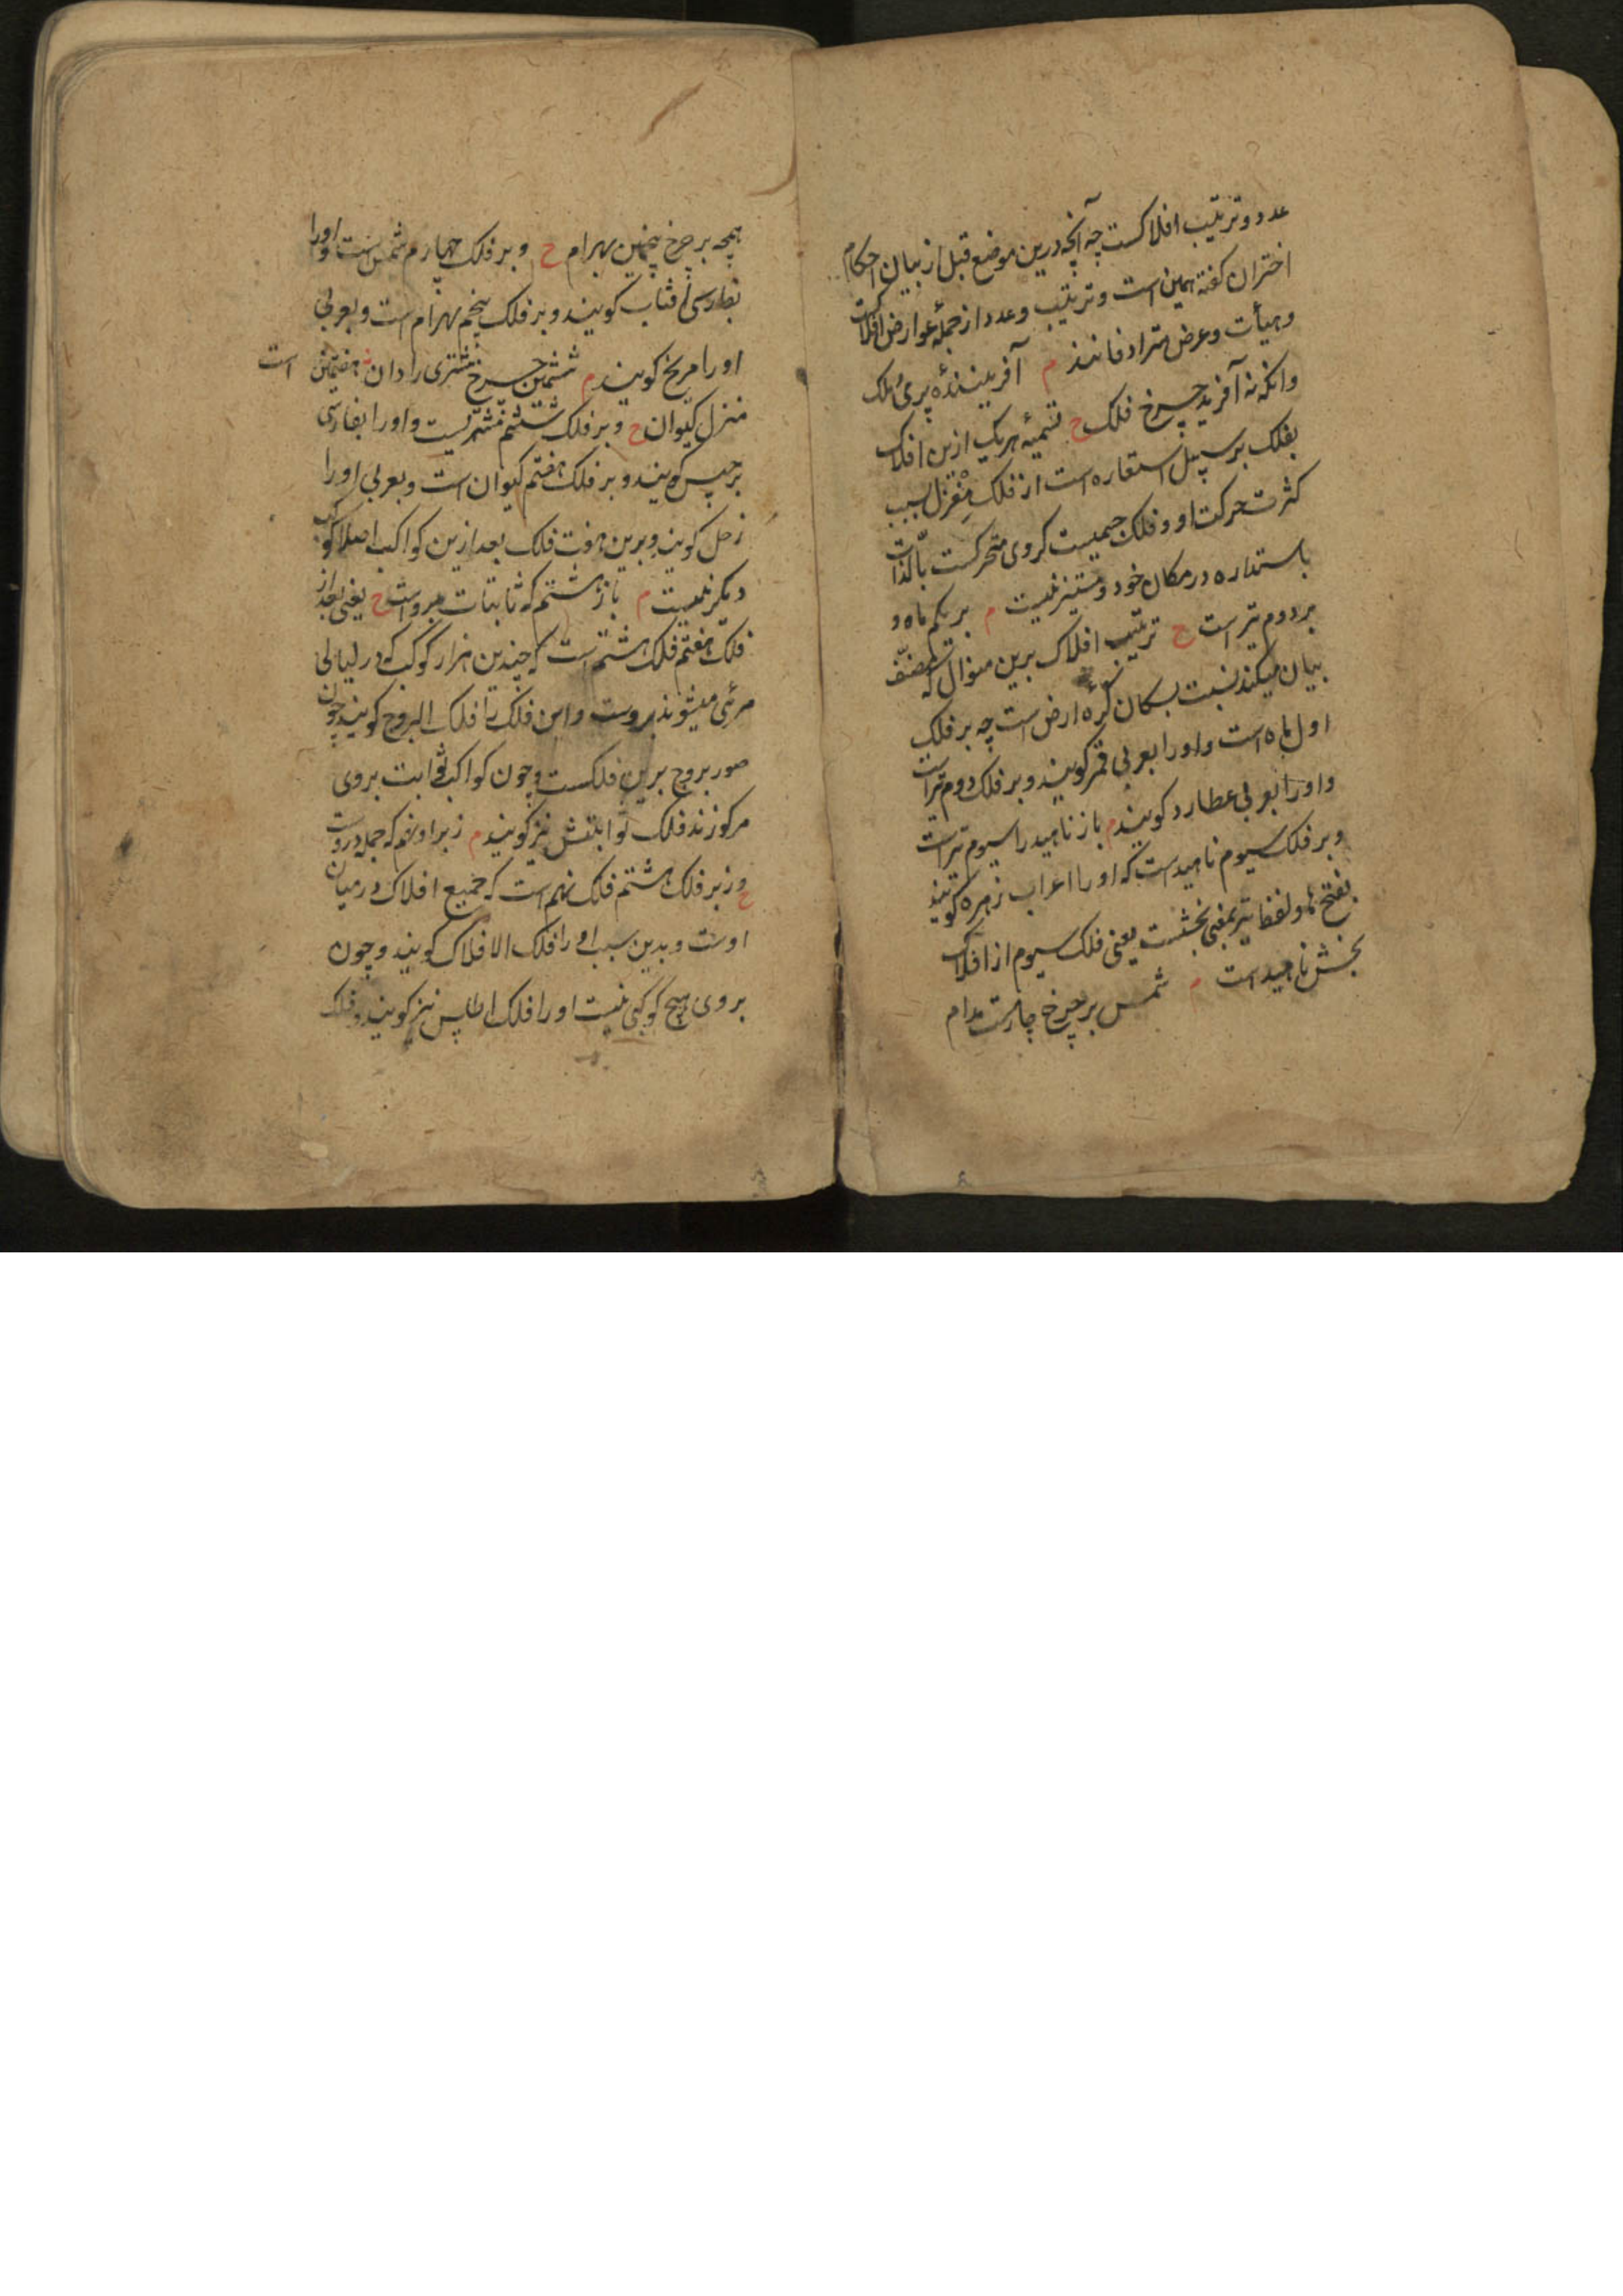 عدد و ترتیب افلاکست چه آنچه درین موضع قبل از بیان احکام
اختران کفته همین است و ترتیب و عدد از جمله عوارض افلاکست
و هیأت و عرض مترادفانند م آفرینندهٔ پری و ملک
وانکه نه آفرید چرخ فلک ح تسمیهٔ هریک ازین افلاک
بفلک بر سبیل استعاره است از فلک مغزل بسبب
کثرت حرکت او و فلک جسمیست کروی متحرکست بالذات
باستداره در مکان خود و مستنیر نیست م بر یکم ماه و
بر دوم تیر است ح ترتیب افلاک برین منوال که مصنف
بیان میکند نسبت بسکان کره ارض است چه بر فلک
اول ماه است و او را بعربی قمر کویند و بر فلک دوم تیر است
و او را بعربی عطارد کویند م باز ناهید را سیوم تیر است
و بر فلک سیوم ناهید است که او را اعراب زهره کویند
بفتح ها و لفظ تیر بمعنی بخشست یعنی فلک سیوم از افلاک
بخش ناهید است م شمس بر چرخ چارست مدام
همچه بر چرخ پنجمین بهرام ح و بر فلک چهارم شمس است و او را
بفارسی آفتاب کویند و بر فلک پنجم بهرام است و بعربی
او را مریخ کویند م ششمین چرخ مشتری را دان هفتمین است
منزل کیوان ح و بر فلک ششم مشتریست و او را بفارسی
برجیس کویند و بر فلک هفتم کیوان است و بعربی او را
زحل کویند و برین هفت فلک بعد ازین کواکب اصلا کوکب
دیکر نیست م باز هشتم که ثابتات بروست ح یعنی بعد از
فلک هفتم فلک هشتم است که چندین هزار کوکب که در لیالی
مرئی میشوند بروست و این فلک را فلک البروج کویند چون
صور بروج برین فلکست و چون کواکب ثوابت بروی
مرکوزند فلک ثوابتش نیز کویند م زبر او نهم که جمله دروست
ح و زبر فلک هشتم فلک نهم است که جمیع افلاک در میان
اوست و بدین سبب او را فلک الافلاک کویند و چون
بروی هیچ کوکبی نیست او را فلک اطلس نیز کویند و فلک